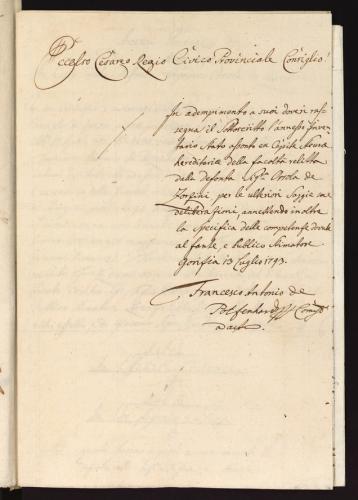 Eccelso Cesareo Regio Civico Provinciale Consiglio!
In adempimento a suoi doveri ras=
segna il Sottoscritto l'annesso Inven=
tario Stato asporto ex Capite
hereditario della facoltà relitta
dalla Defonta Orsola de
Zorsini, per le ulteriori Saggie sue
deliberazioni, annettendo inoltre
la specifica delle competenze dovute
al fante, e publico Stimatore
Gorizia 13 Luglio 1793.
Francesco Antonio de